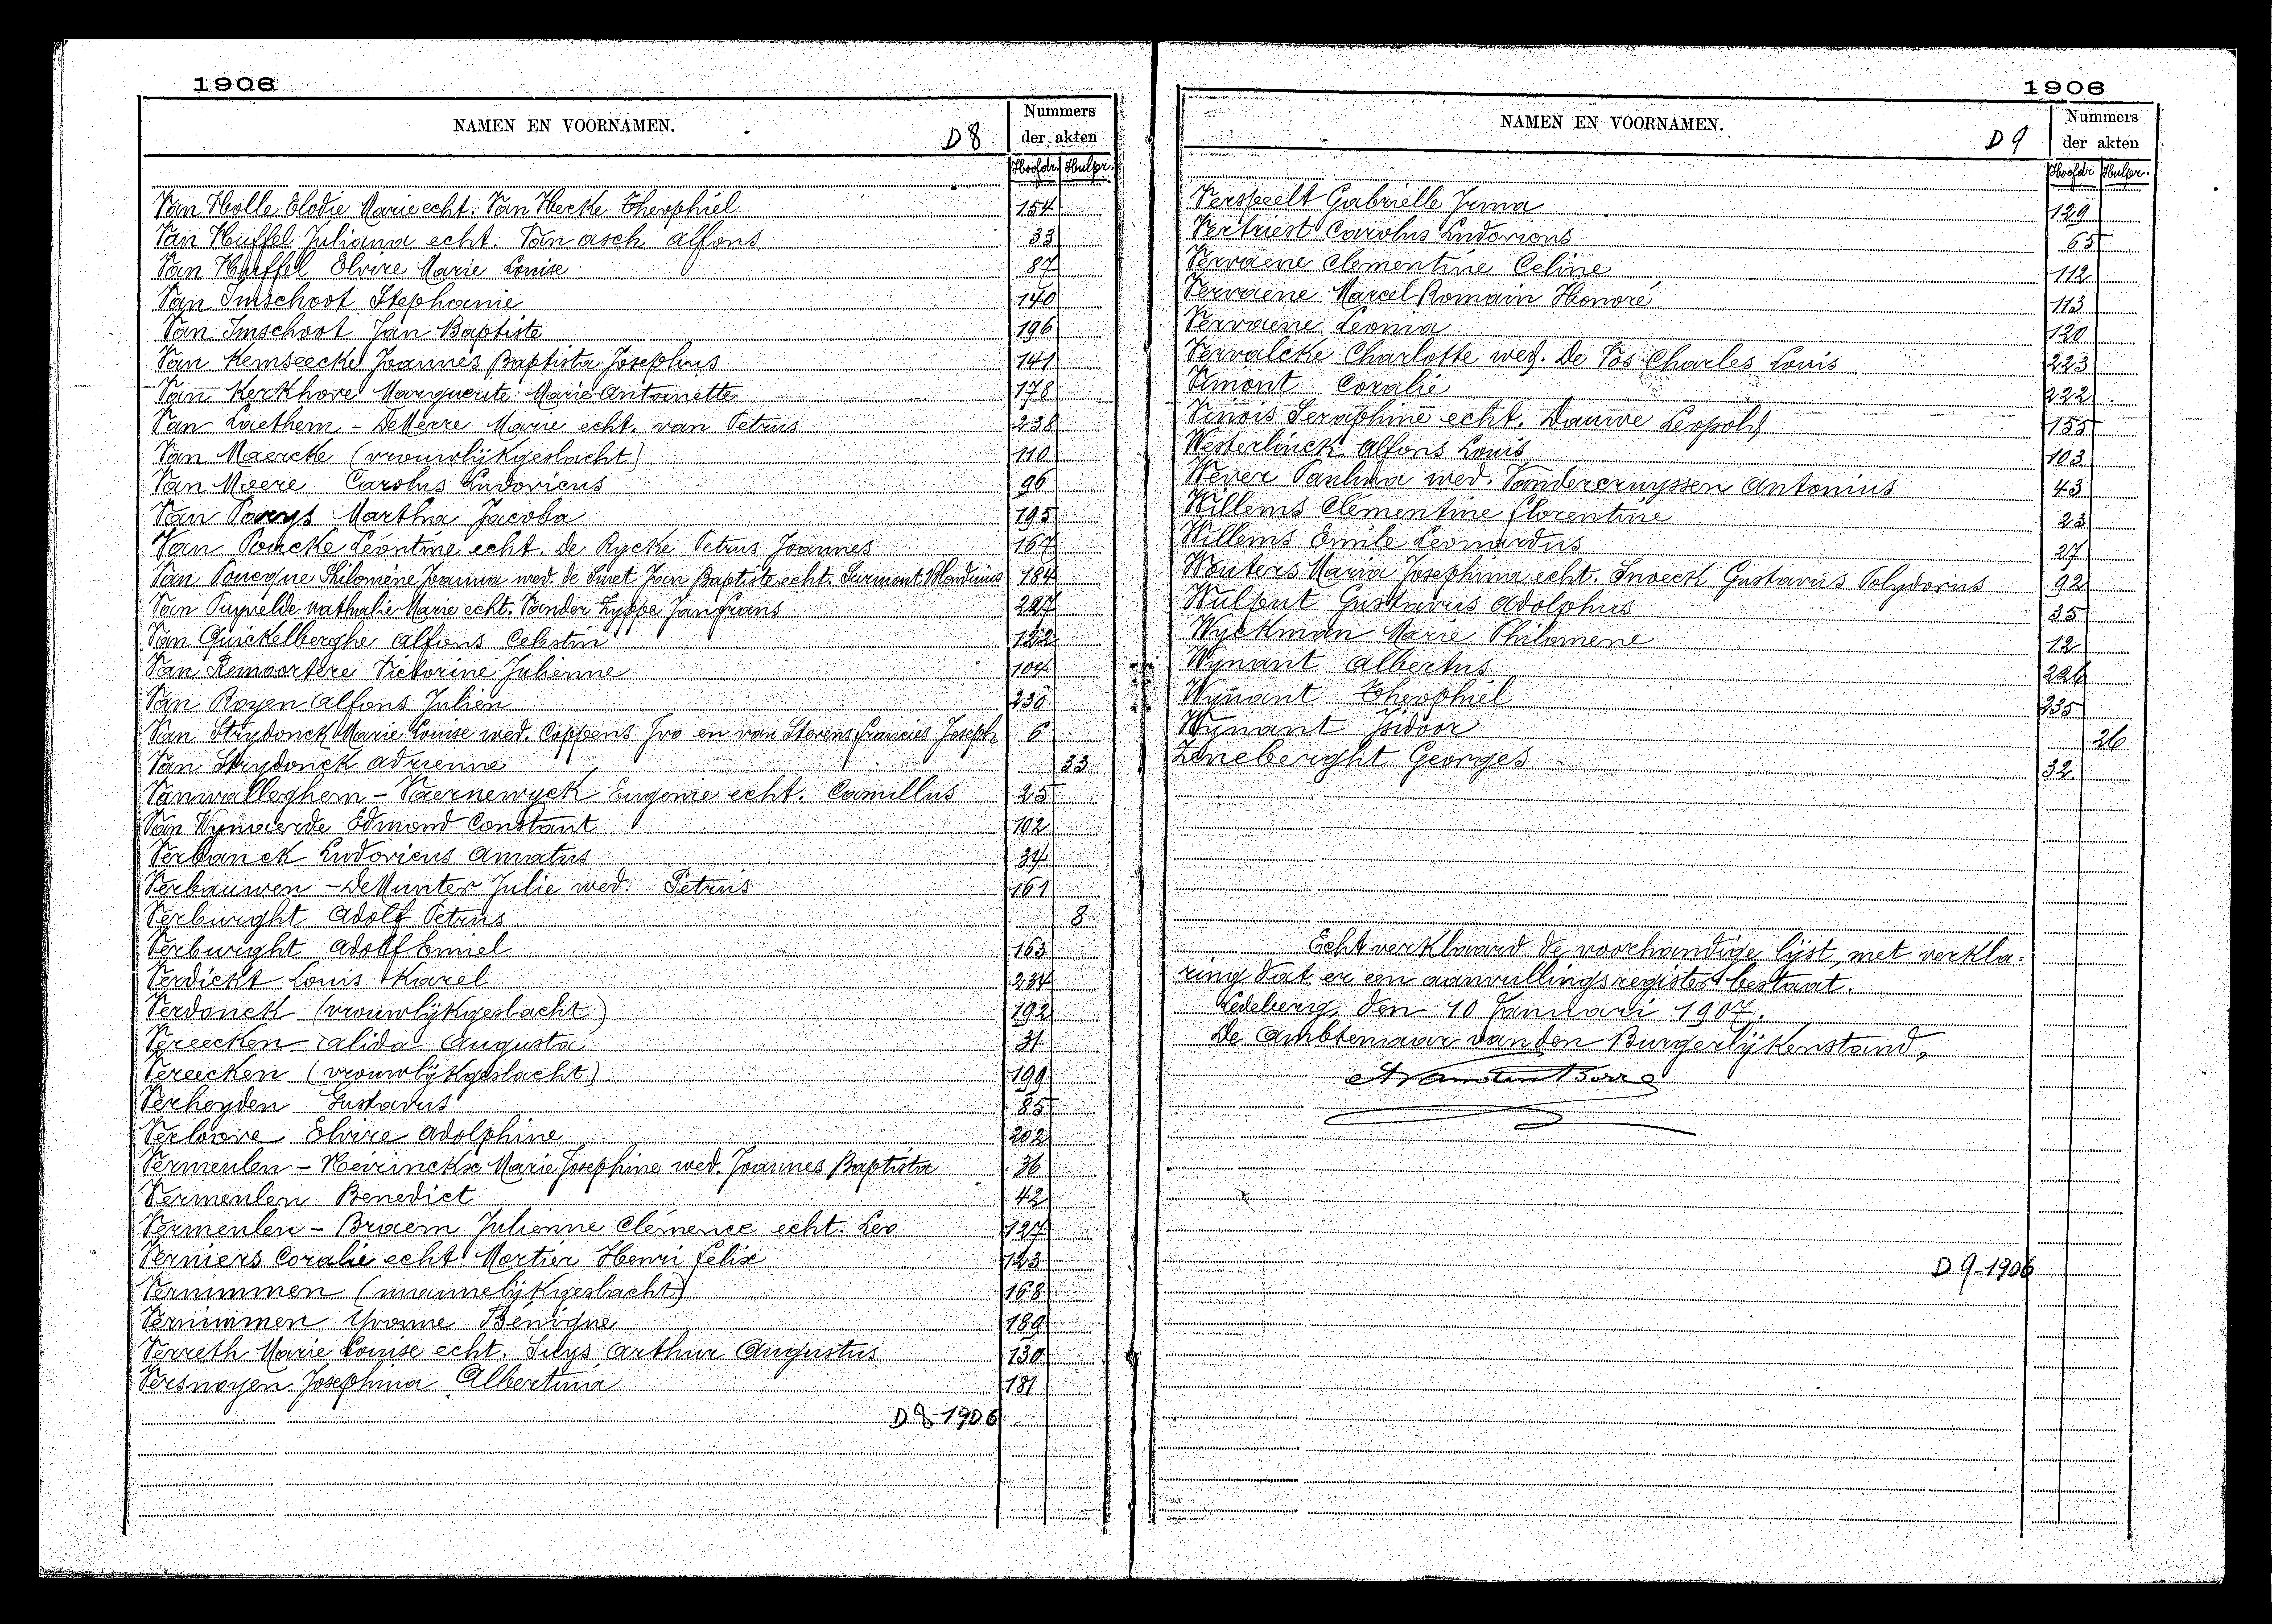 1906
NAMEN EN VOORNAMEN. D 8
Nummers
der akten
Hoofdr. Hulpr.
Van Holle Elodie Marie echt. Van Hecke Theophiel 154
Van Huffel Juliana echt. Van asch alfons 33
Van Huffel Elvire Marie Louise 87
Van Imschoot Stephanie 140
Van Imschoot Jan Baptiste 196
Van Kemseecke Joannes Baptista Josephus 141
Van Kerkhove Marguerite Marie Antoinette 178
Van Laethem - DeMerre Marie echt. van Petrus 238
Van Maercke (vrouwlijkgeslacht) 110
Van Moere Carolus Ludovicus 96
Van Parys Martha Jacoba 195
Van Poucke Léontine echt. De Rycke Petrus Joannes 167
Van Poucque Philomène Joanna wed. de Smet Jan Baptiste echt. Surmont 184
Van Puyvelde Nathalie Marie echt. Vander Zyppe Jan frans 227
Van Quickelberghe alfons Celestin 122
Van Remoortere Victorine Julienne 104
Van Royen alfons Julien 230
Van Strydonck Marie Louise wed. Coppens Ivo en van Stevens francies Joseph 6
Van Strydonck adrienne 33
Vanwalleghem - Vaernewyck Eugenie echt. Camillus 25
Van Wynaerde Edmond Constant 102
Verbanck Ludovicus amatus 34
Verbauwen - deMunter Julie wed. Petrus 161
Verburght adolf Petrus 8
Verburght adolf Emiel 163
Verdickt Louis Karel 234
Verdonck (vrouwlijkgeslacht) 192
Vereecken alida Augusta 31
Vereecken (vrouwlijkgeslacht) 199
Verheyden Gustavus 85
Verloove Elvire adolphine 202
Vermeulen - Heirinckx Marie Josephine wed. Joannes Baptista 36
Vermeulen Benedict 42
Vermeulen - Braem Julienne Clémence echt. Leo 127
Verniers Coralie echt Mortier Henri felix 123
Vernimmen (mannelijkgeslacht) 168
Vernimmen Yvonne Bénigne 189
Verreth Marie Louise echt. Suys arthur Augustus 130
Versnoyen Josephina Albertina 181
D 8-1906
1906
NAMEN EN VOORNAMEN. D 9
Nummers
der akten
Hoofdr Hulpr.
Verspeelt Gabriëlle Irma 129
Vertriest Carolus Ludovicus 65
Vervaene Clementine Celine 112
Vervaene Marcel Romain Honoré 113
Vervaene Leonia 120
Vervalcke Charlotte wed. De Vos Charles Louis 223
Vimont Coralie 222
Vinois Seraphine echt. Dauwe Leopold 155
Westerlinck alfons Louis 103
Wever Paulina wed. Vandercruyssen Antonius 43
Willems Clémentine florentine 23
Willems Emile Leonardus 27
Wouters Maria Josephina echt. Snoeck Gustavus Polydorus 92
Wulput Gustavus adolphus 35
Wyckman Marie Philomene 12
Wynant albertus 226
Wynant Theophiel 235
Wynant Isidoor 26
Zeneberght Georges 32
Echt verklaard de voorhandige lijst, met verkla=
ring dat er een aanvullingsregister bestaat.
Ledeberg, den 10 Januari 1907.
De Ambtenaar van den Burgerlijkenstand,
D 9-1906